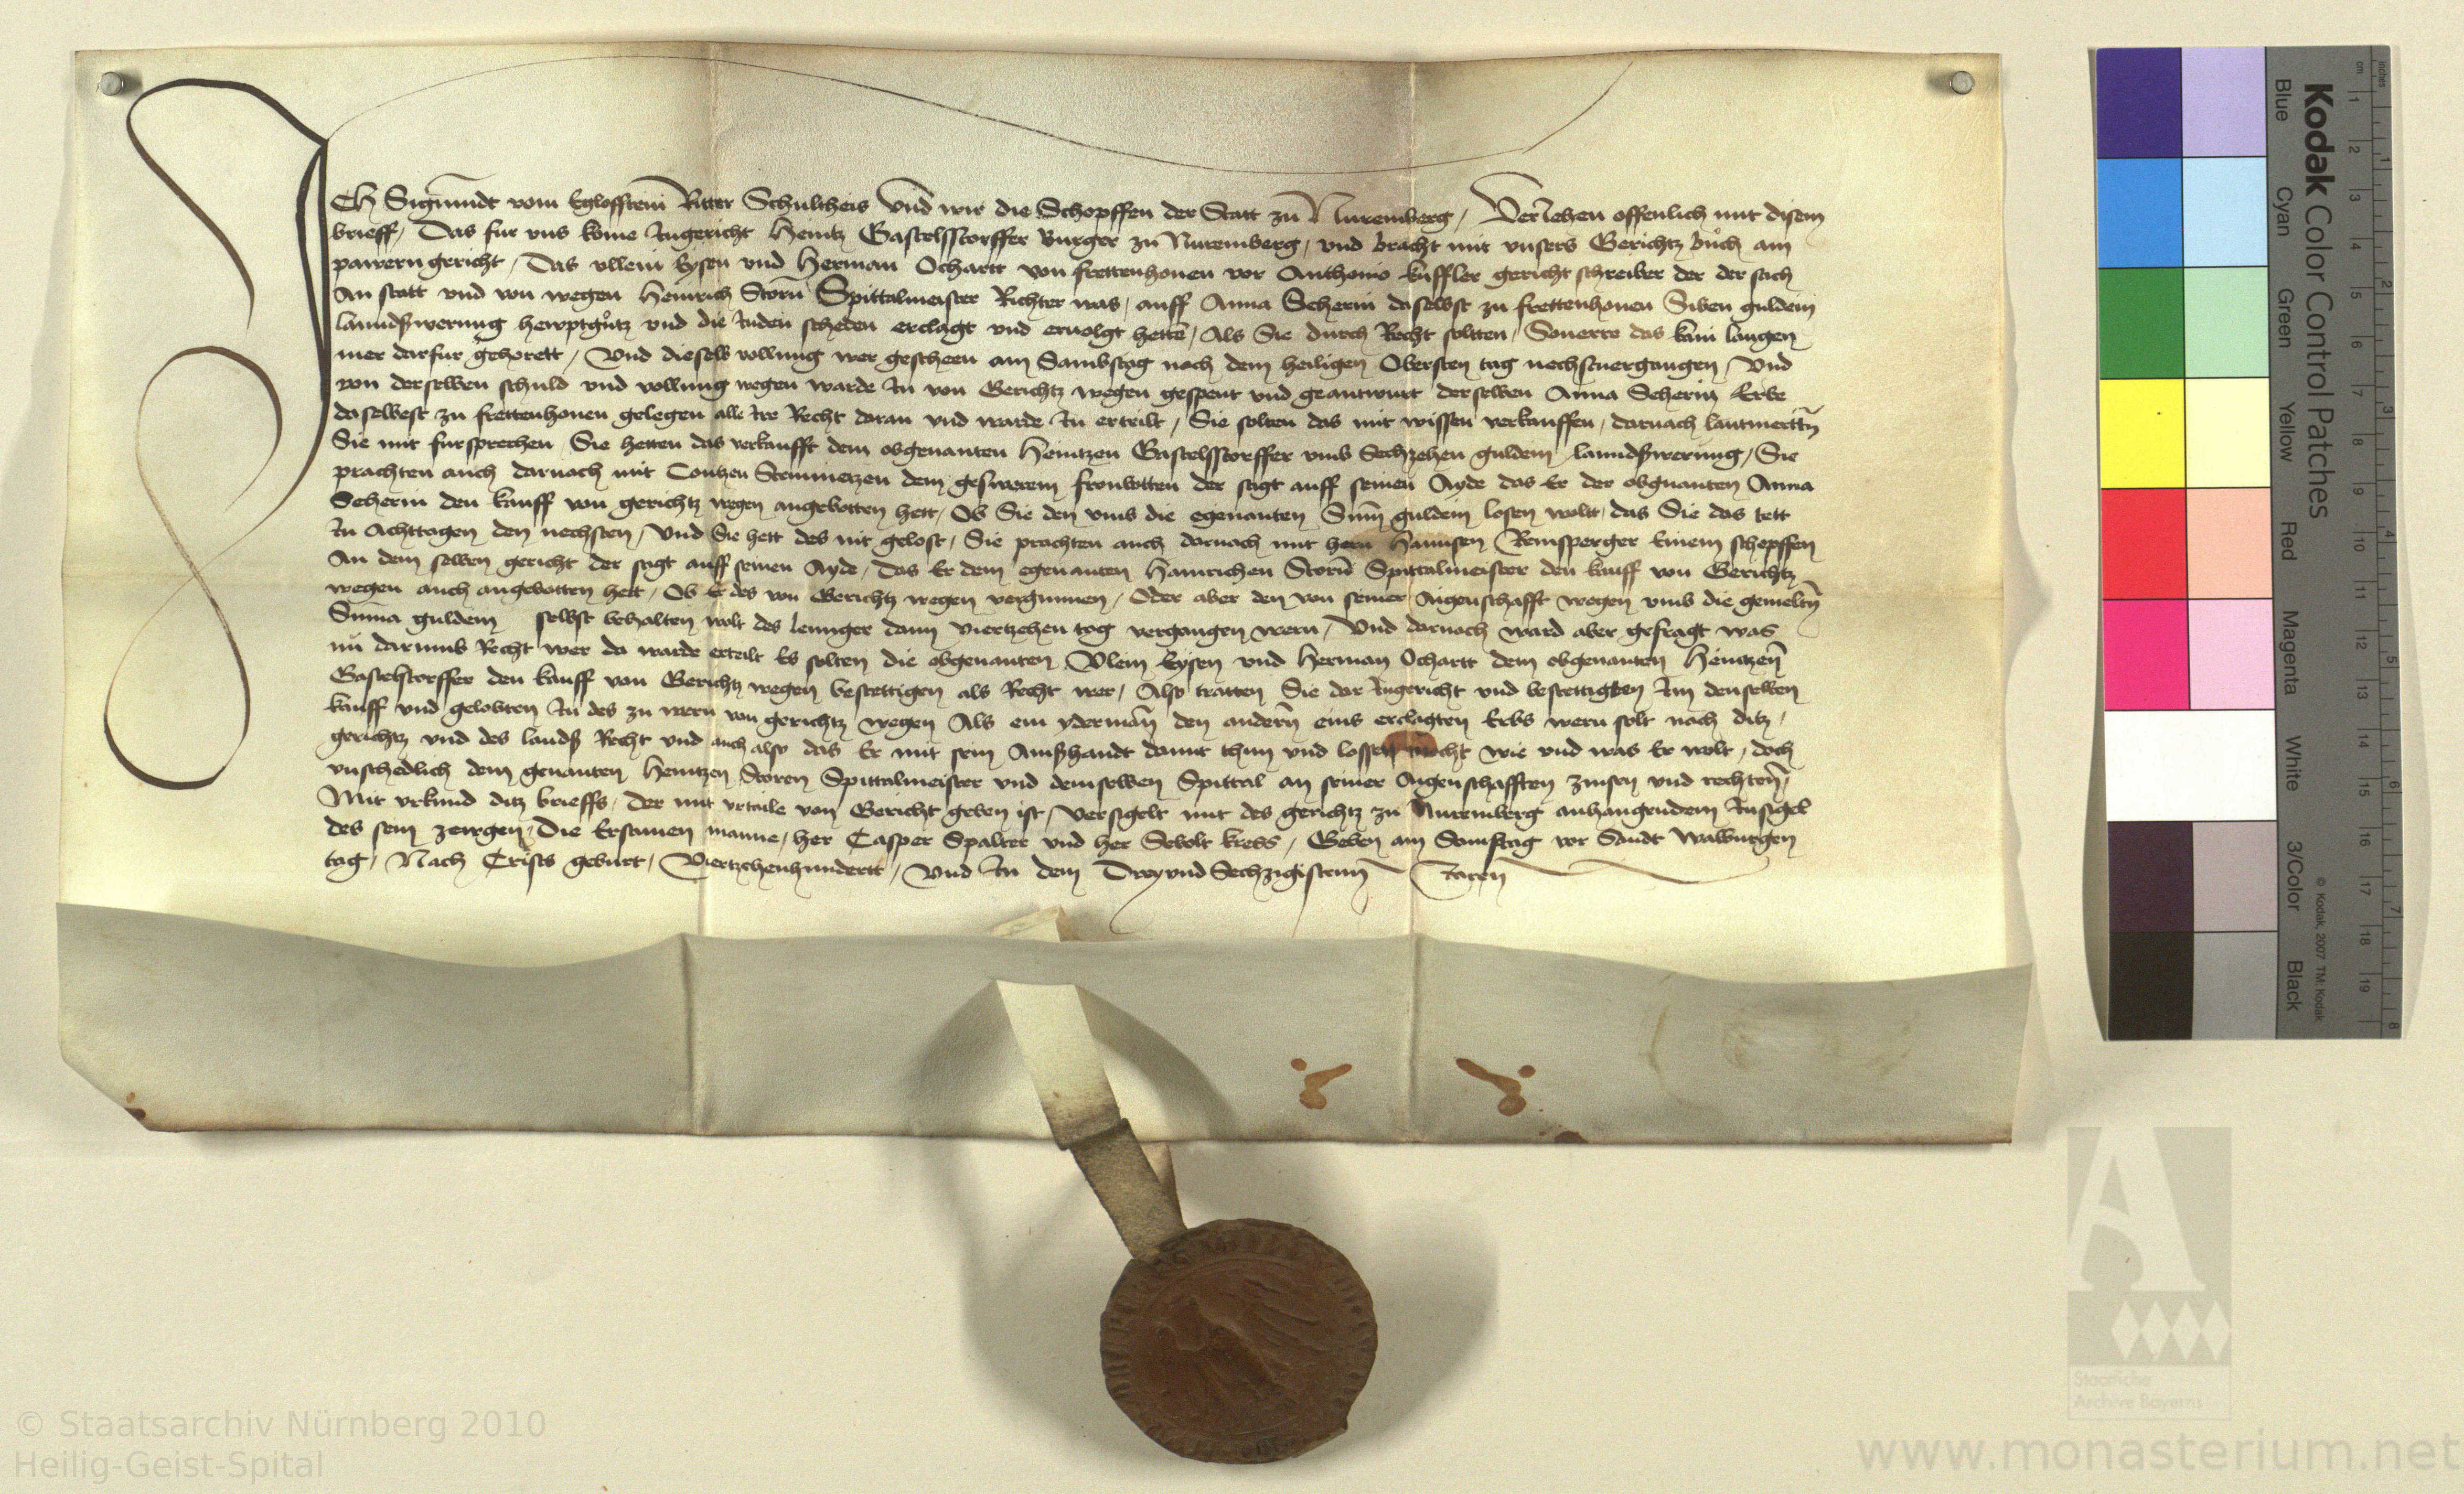 ICH Sigmundt vom Egloffstein Ritter Schultheis Und wir die Schopffen der Statt zu Nuremberg / Veriehen offenlich mit disem
brieff / Das fur vns kome Ingericht Heintz Gastelsstorffer Burger zu Nuremberg / vnd bracht mit vnsers Gerichtz buch am
pawrengericht / Das vllein Eysen vnd Herman Ochartt von frettenhouen vor Anthonio kuffler gericht schreiber der der sach
An statt vnd von wegen Heinrich Storn Spittalmeister Richter was / auff Anna Scherin daselbst zu frettenhouen Siben guldein
lanndßwerung hewptgutz vnd die Inden scheden erclagt vnd eruolgt hetten / Als Sie durch Recht soltten / Souerre das kain laugen
mer darfur gehorett / Vnd dieselb vollung wer gescheen am Sambstag nach dem heiligen Obersten tag nechstuergangen / Vnd
von derselben schuld vnd vollung wegen warde In von Gerichtz wegen gespent vnd geantwurt derselben Anna Scherin Erbe
daselbest zu frettenhouen gelegen alle Ire Recht daran vnd warde In erteilt / Sie solten das mit wissen verkauffen / darnach lautmertten
Sie mit fursprechen Sie hetten das verkaufft dem obgenanten Heintzen Gastelsstorffer vmb Sechzehen guldein lanndßwerung / Sie
prachten auch darnach mit Contzen Steinmetzen dem gesworem fronbotten der sagt auff seinen Ayde das Er der obgnanten Anna
Scherin den kauff von gerichtz wegen angebotten hett / Ob Sie den vmb die egenanten Summ guldein losen wolt / das Sie das tett
In Achttagen den nechsten / Vnd Sie hett des nit gelost / Sie prachten auch darnach mit hern Hannsen Remsperger Einem schopffen
An dem selben gericht der sagt auff seinen Ayde / Das Er dem egenanten Hainrichen Storn Spittalmeister den kauff von Gerichtz
wegen auch angebotten hett / Ob Er des von Gerichtz wegen vergunnen / Oder aber den von seiner Aigenschafft wegen vmb die gemelten
Summa guldein selbst behalten wolt des lennger dann Viertzehen tag vergangen wern / Vnd darnach ward aber gefragt was
nu darumb Recht wer da warde erteilt Es solten die obgenanten Vlein Eysen vnd Herman Ochartt dem obgenanten Heintzen
Gastelstorffer den kauff von Gerichtz wegen bestettigen als Recht wer / Also tratten Sie dar Ingericht vnd bestettigten Im denselben
kauff vnd gelobten In des zu wern von gerichtz wegen Als ein yderman den andern eins erclagten Erbs wern solt nach ditz /
gerichtz vnd des landß Recht vnd auch also das Er mit sein Amßhandt damit thun vnd lossen mocht wie vnd was Er wolt / doch
vnschedlich dem genanten Heintzen Storen Spittalmeister vnd demselben Spittal an seiner Aigenschafften zinsen vnd rechten /
Mit vrkund ditz brieffs / der mit vrtaile von Gericht geben ist / Versigelt mit des gerichtz zu Nuremberg anhangendem Insigel
des sein zewgen / Die Ersamen manne / her Casper Spalter vnd her Sebolt kress / Geben am Samstag vor Sandt Walburgen
tag / Nach Crists geburt / Viertzehenhundertt / Vnd In dem Drey vnd Sechzigistenn Jaren
Kodak Color Control Patches
Blue Cyan Green Yellow Red Magenta White 3/Color Black
© Kodak, 2007 TM: Kodak
cm 1 2 3 4 5 6 7 8 9 10 11 12 13 14 15 16 17 18 19
inches 1 2 3 4 5 6 7 8
Staatliche
Archive Bayerns
© Staatsarchiv Nürnberg 2010
Heilig-Geist-Spital
www.monasterium.net